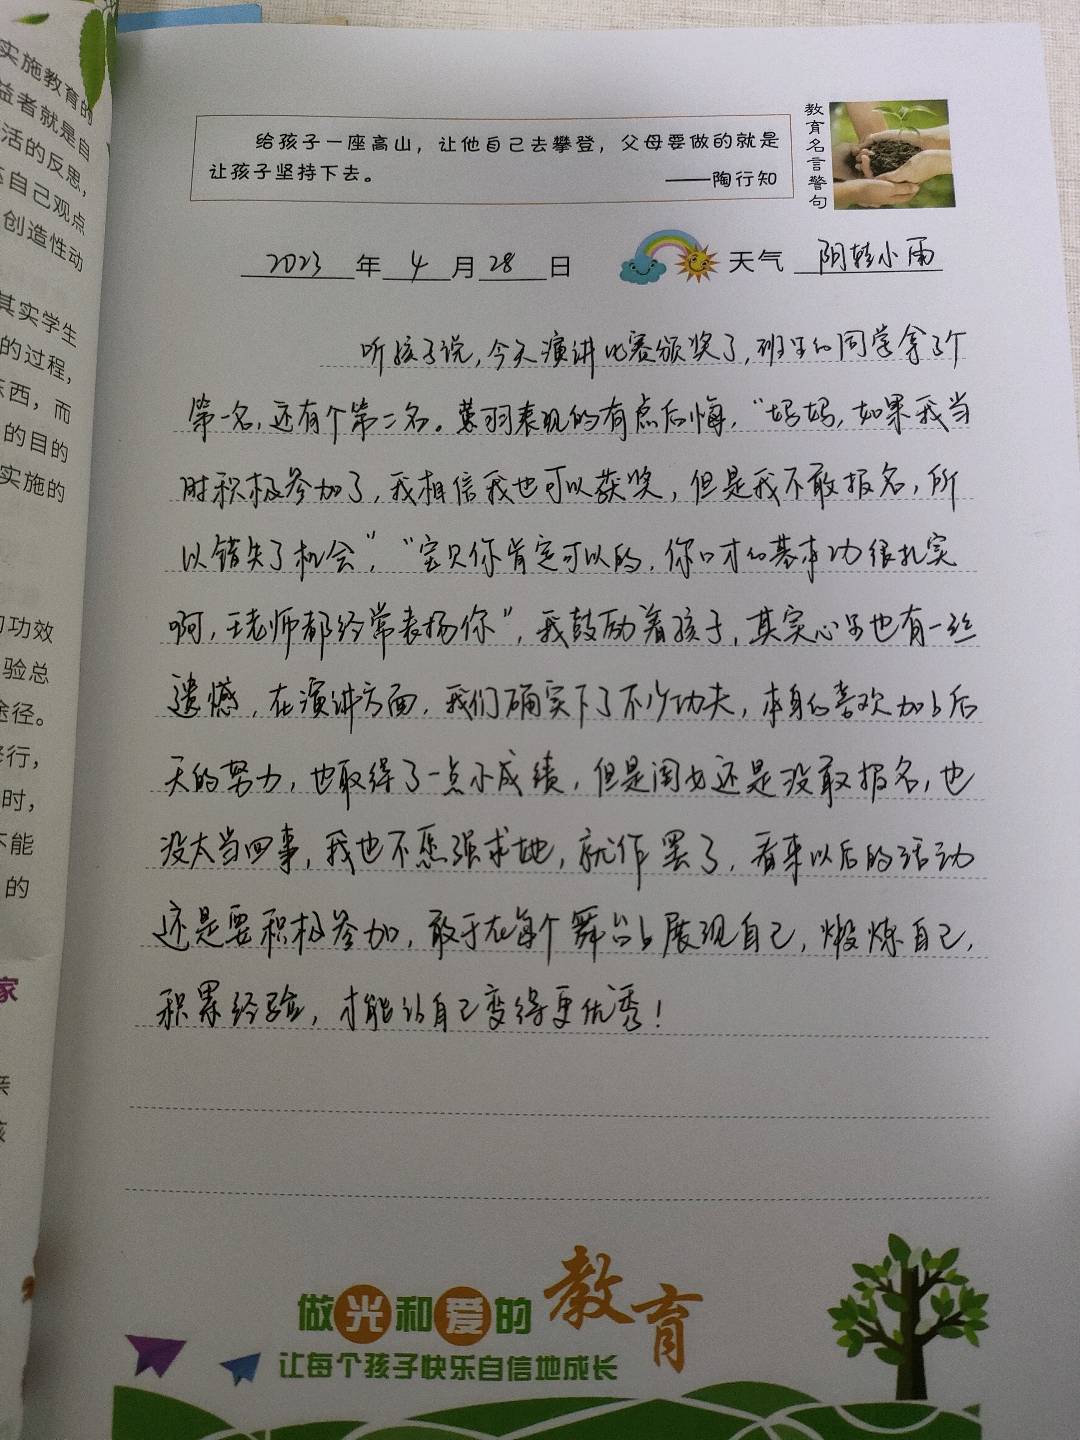 实施教育的
益者就是自
活的反思,
自己观点
创造性动
其实学生
的过程,
东西，而
的目的
实施的
功效
验总
途径。
行，
时，
不能
的
家
亲
教育名言警句
给孩子一座高山，让他自己去攀登，父母要做的就是
让孩子坚持下去。 ——陶行知
2023年4月28日 天气 阴转小雨
听孩子说,今天演讲比赛颁奖了,班里的同学拿了个
第一名,还有个第二名。羽表现的有点后悔,"妈妈,如果我当
时积极参加了,我相信我也可以获奖,但是我不敢报名,所
以错失了机会","宝贝你肯定可以的,你口才的基本功很扎实
啊,王老师都经常表扬你",我鼓励着孩子,其实心里也有一丝
遗憾,在演讲方面,我们确实下了不少功夫,本身的喜欢加上后
天的努力,也取得了一点小成绩,但是闺女还是没敢报名,也
没太当回事,我也不愿强求她,就作罢了,看来以后的活动
还是要积极参加,敢于在每个舞台上展现自己,煅炼自己,
积累经验,才能让自己变得更优秀!
做光和爱的教育
让每个孩子快乐自信地成长